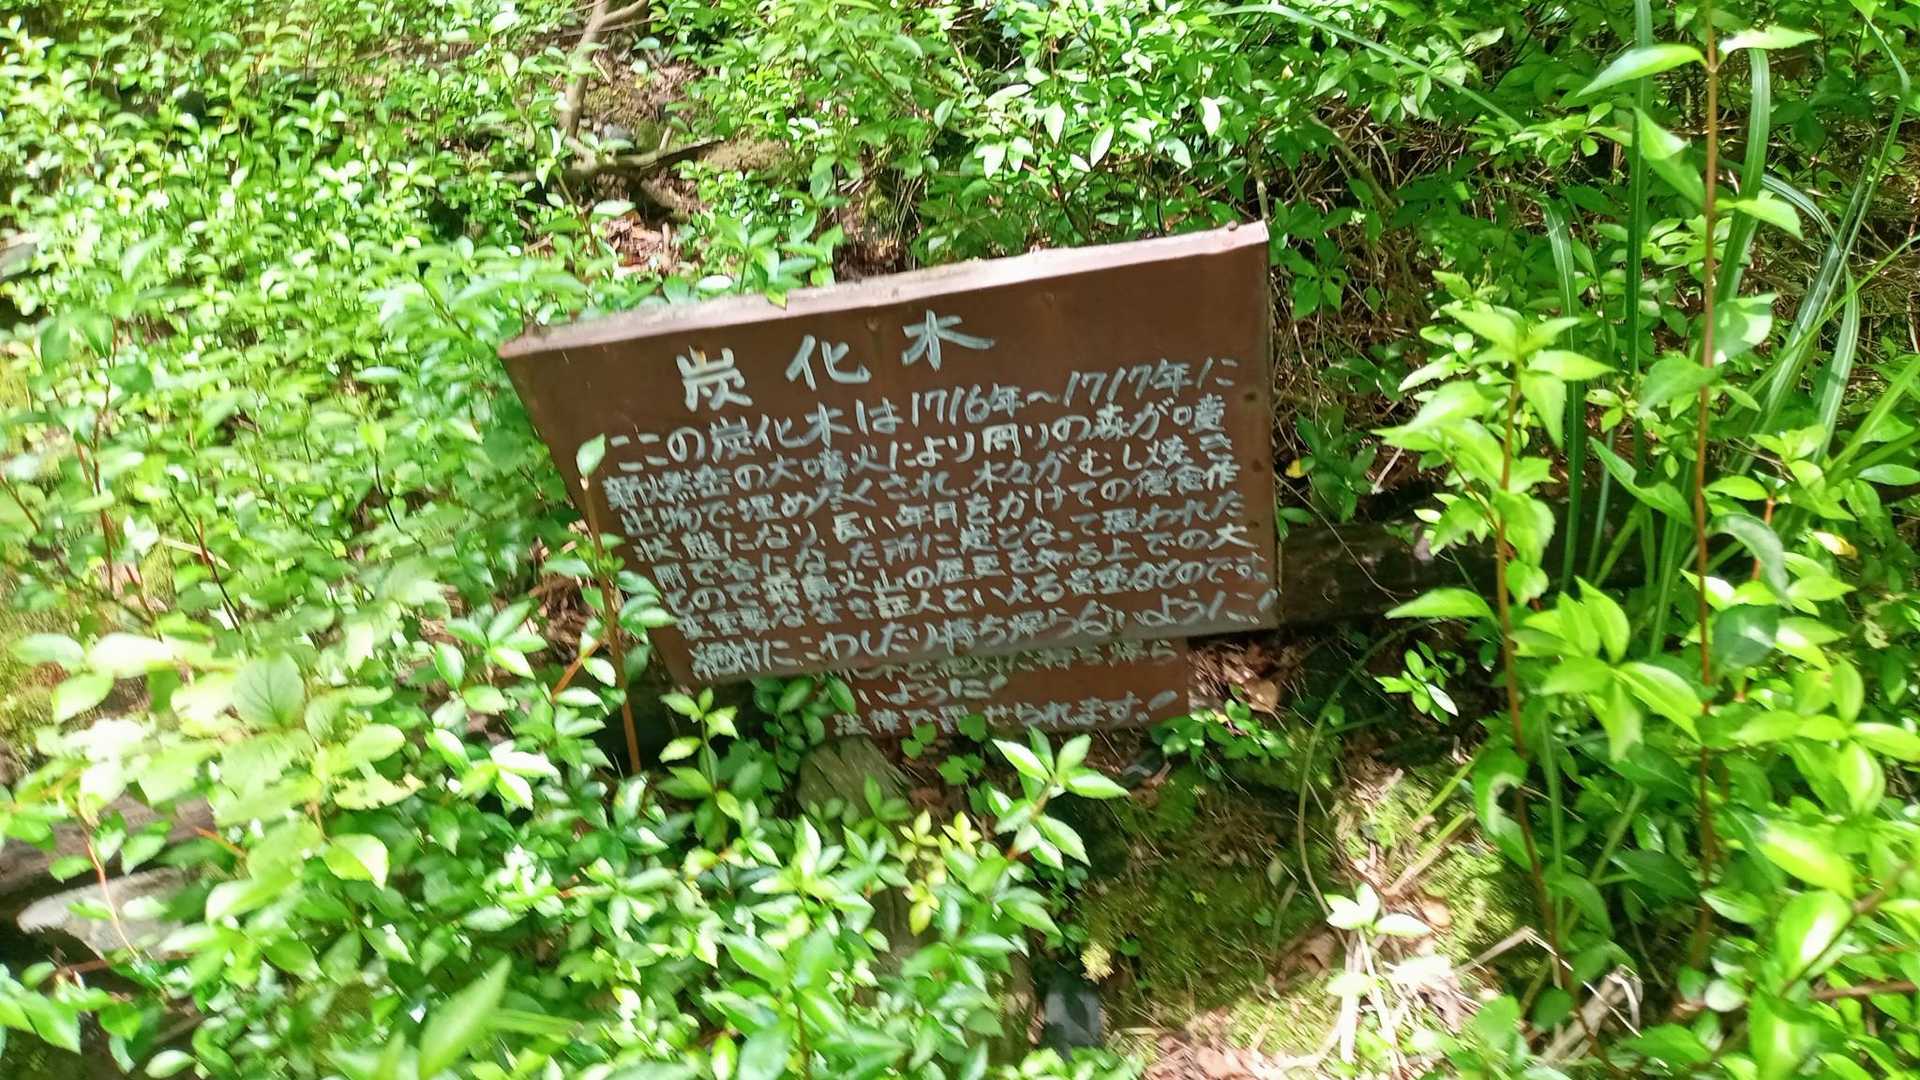 炭化木
ここの炭化木は1716年～1717年に
新燃岳の大噴火により周りの森が噴
出物で埋め尽くされ、木々がむし焼き
状態になり、長い年月をかけての侵食作
用で谷になった所に産となって現われた
もので霧島火山の歴史を知る上での大
変重要な生き証人といえる貴重なものです。
絶対に、こわしたり持ち帰らないように!
絶対に持ち帰ら
いように!
法律で罰せられます。!